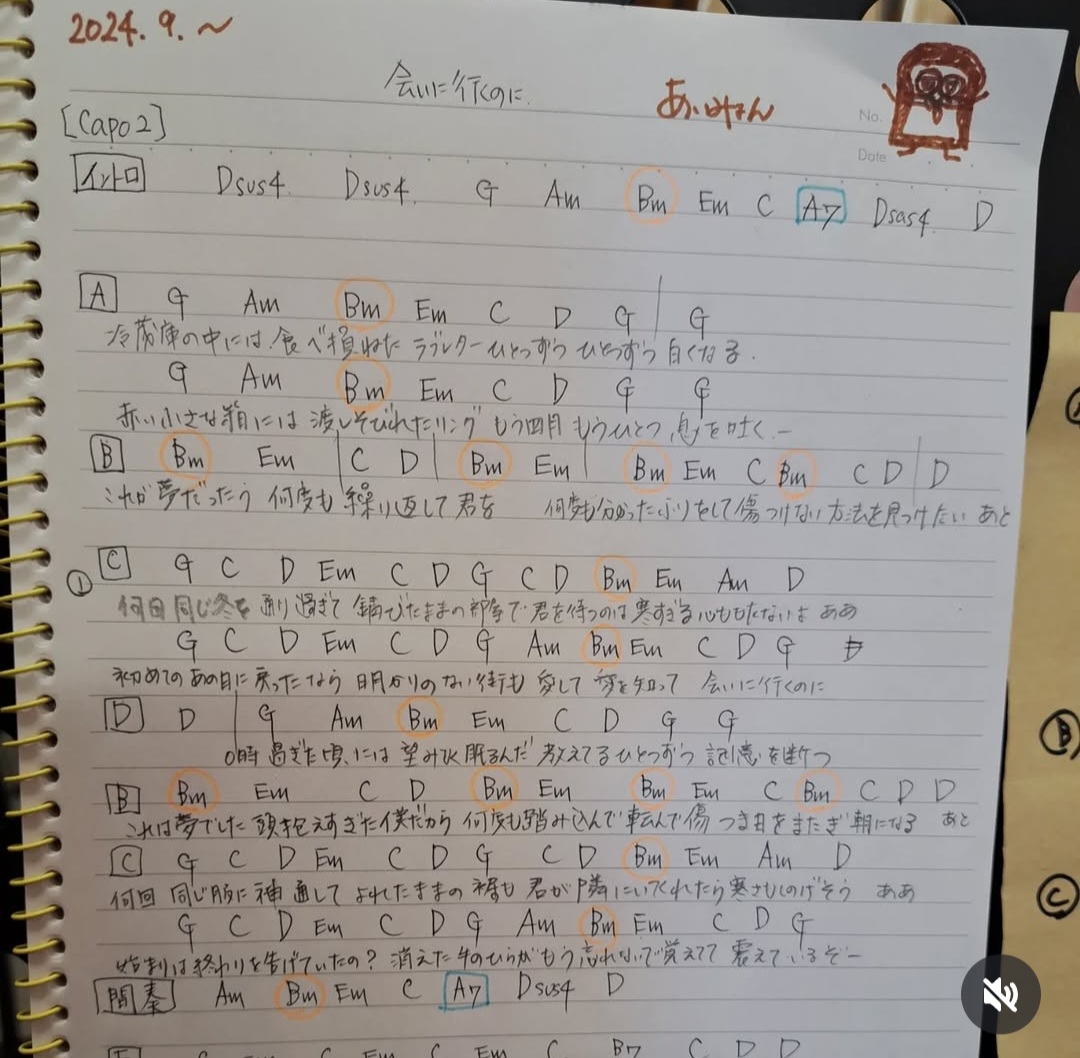 2024.9.〜
会いに行くのに.
あいみょん
No.
[Capo2]
Date
イントロ Dsus4. Dsus4. G Am Bm Em C A7 Dsus4. D
A G Am Bm Em C D G | G
冷蔵庫の中には 食べ損ねた ラブレター ひとつずつ ひとつずつ 白くなる.
G Am Bm Em C D G G
赤い小さな箱には 渡しそびれたリング もう四月 もうひとつ 息を吐く.ー
B Bm Em | C D | Bm Em | Bm Em C Bm C D | D
これが夢だったら 何度も 繰り返して 君を 何度も分かったふりをして傷つけない 方法を見つけたい あと
① C G C D Em C D G C D Bm Em Am D
何回 同じ冬を 通り過ぎて 錆びたままの部屋で 君を待つのは 寒すぎる 心ももたないよ ああ
G C D Em C D G Am Bm Em C D G
初めてのあの日に 戻ったなら 明かりのない街も 愛して 愛を知って 会いに行くのに
D D | G Am Bm Em C D G G
0時過ぎた頃には 望み次 眠るんだ 教えてる ひとつずつ 記憶を断つ
B Bm Em C D Bm Em Bm Em C Bm C D D
これは夢でした 頭抱えすぎた僕だから 何度も踏み込んで 転んで傷 つき日をまたぎ朝になる あと
C G C D Em C D G C D Bm Em Am D
何回 同じ服に 袖 通して よれたままの 裾も 君が隣にいてくれたら寒さもしのげそう ああ
G C D Em C D G Am Bm Em C D G
始まりは終わりを告げていたの? 消えた 手のひらが もう忘れないで覚えてて 震えているぞー
間奏 Am Bm Em C A7 Dsus4 D
Em C Em C B7 C D D
A
B
C